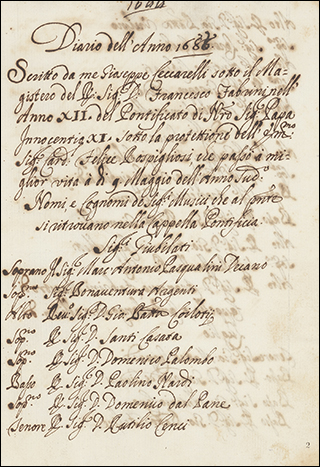 Diario dell'Anno 1688.
Scritto da me Giuseppe Ceccarelli sotto il Ma-
gistero del Sig.r D. Francesco Fabrini nell'
Anno XII. del Pontificato di Nro Sig.re Papa
Innocentio XI. sotto la protettione dell'Em.mo
Sig.r Card. Felice Rospigliosi, che passò à mi-
glior vita à dì 9 Maggio dell'Anno sud.o
Nomi, e Cognomi de Sig.ri Musici che al pnte
si ritrovano nella Cappella Pontificia
Sig.ri Giubilati
Soprano Il Sig.r Marc'Antonio Pasqualini Decano
Sop.no Sig.r Bonaventura Argenti
Alto Sig.r D. Gio. Batta
Sop.no Il Sig.r D. Santi Casata
Sop.no Il Sig.r D. Domenico Palombo
Basso Il Sig.r D. Paolino Nardi
Sop.no Il Sig.r D. Domenico dal Pane
Tenore Il Sig.r D. Rutilio Cenci
2